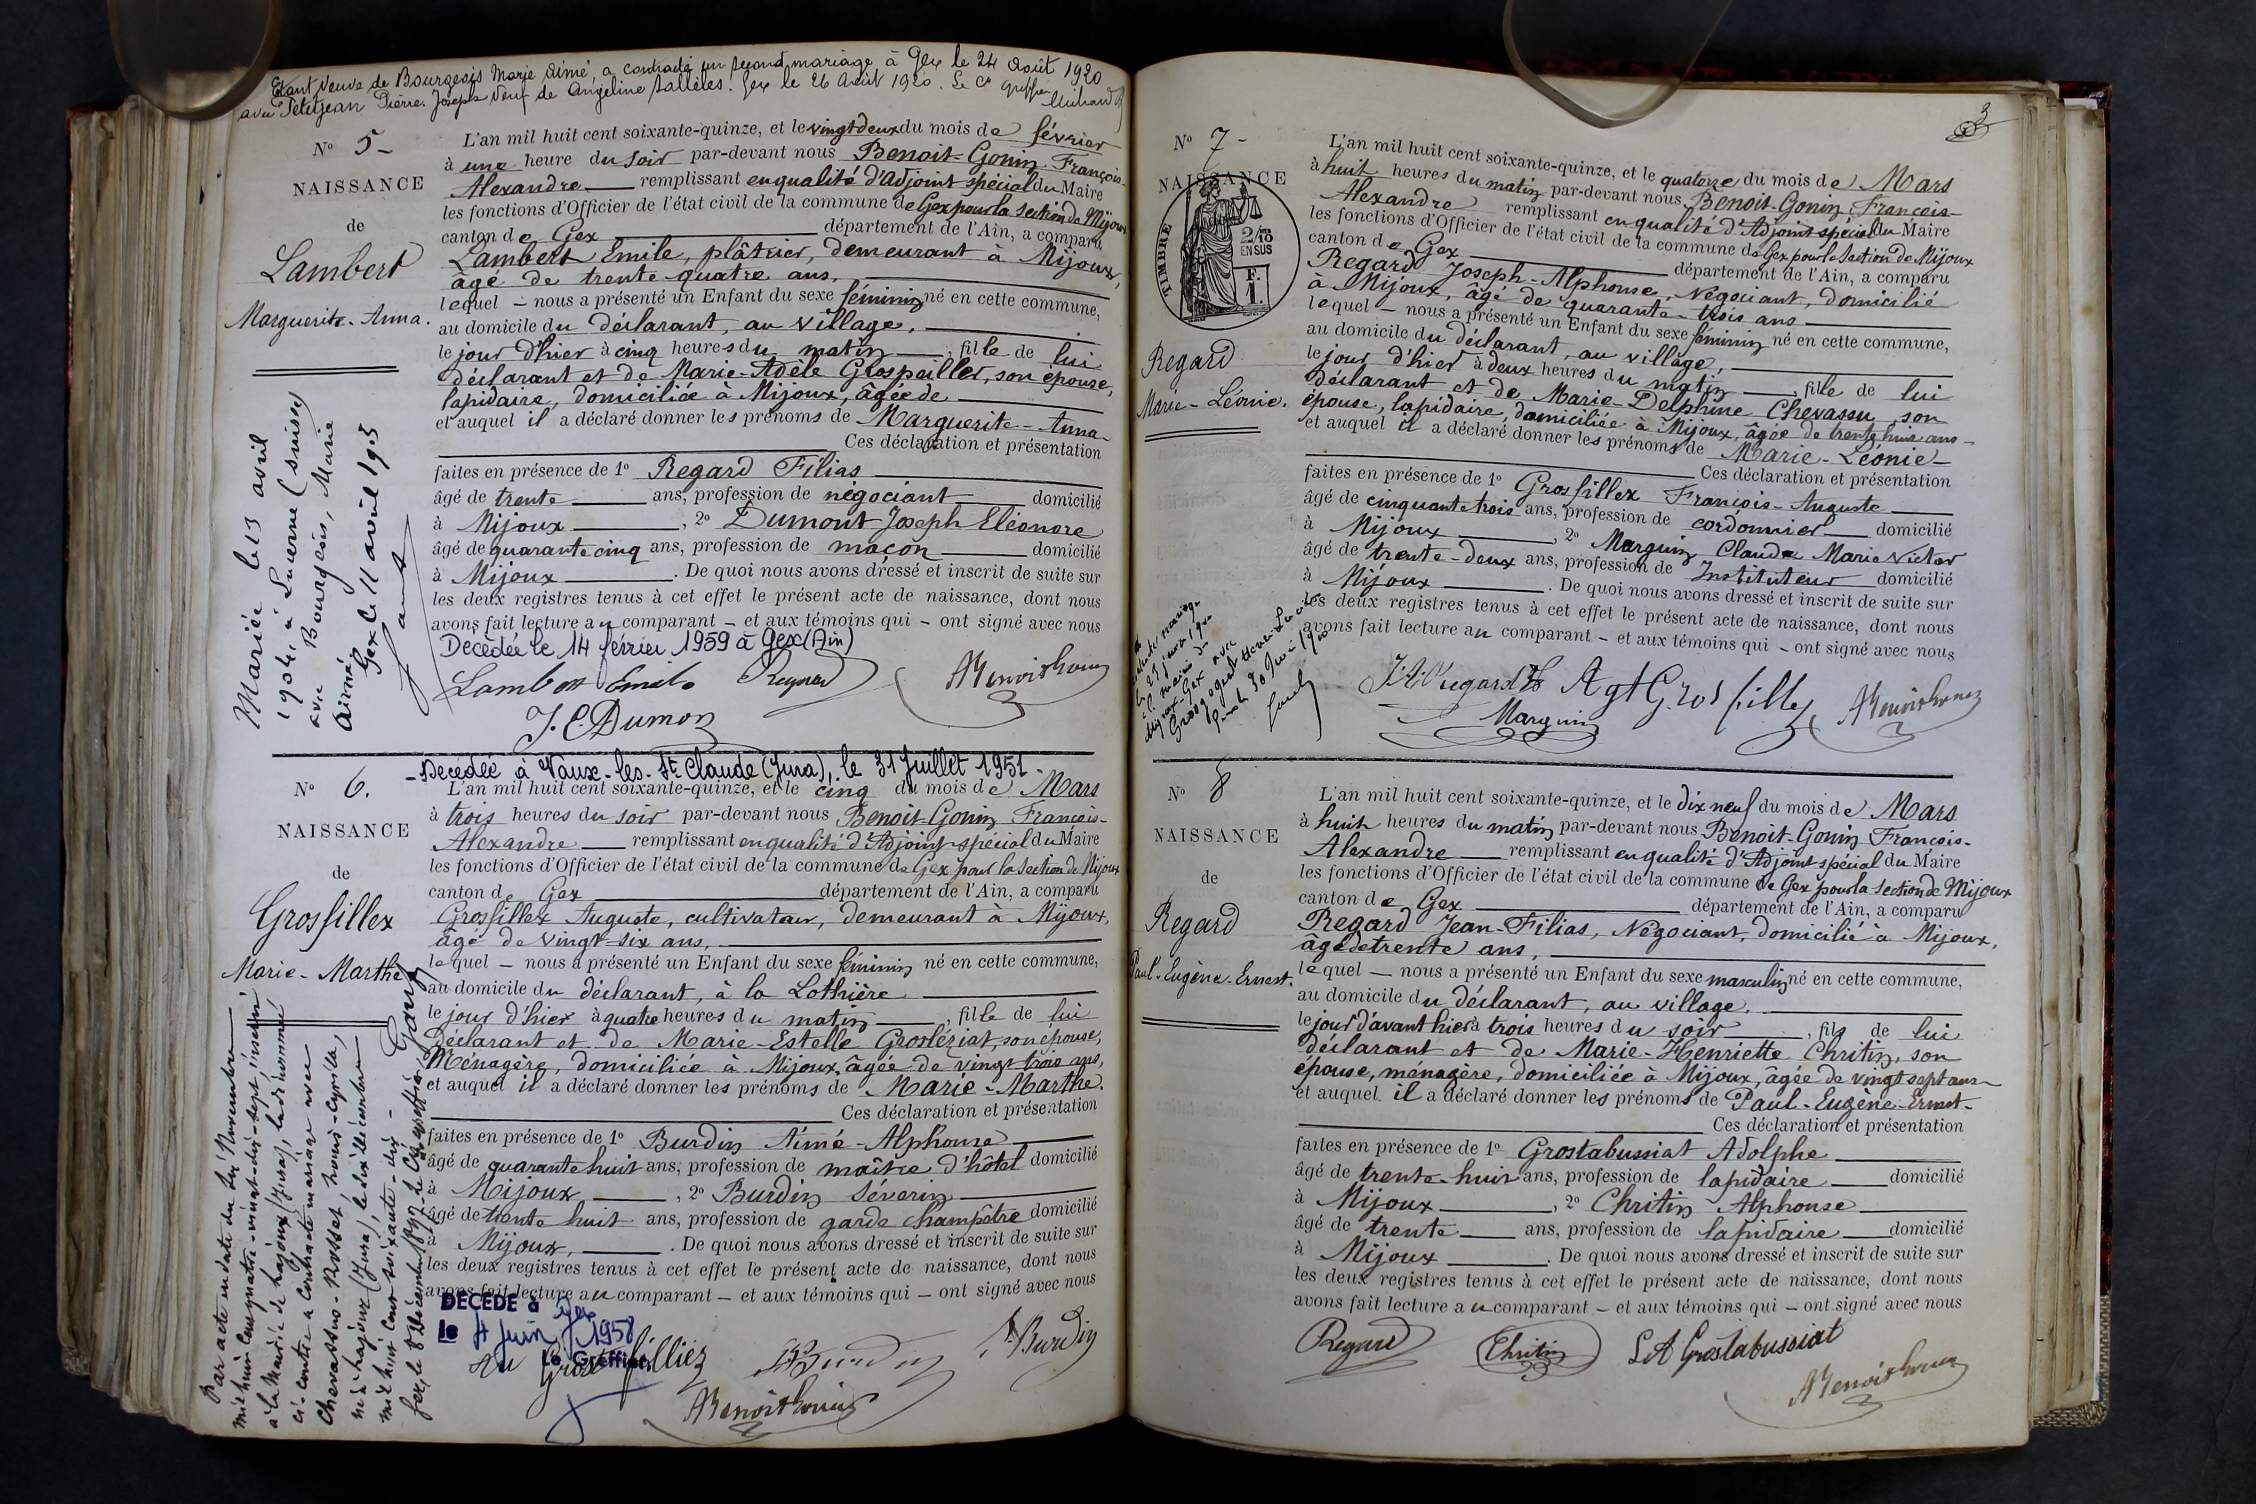 Etant Veuve de Bourgeois Marie Aimé, a contracté un second mariage à Gex le 24 Août 1920
avec Petitjean Pierre Joseph veuf de Angeline Salléles. Gex le 26 Août 1920. Le Cs greffier
Nº 5
NAISSANCE
de
Lambert
Marguerite-Anna.
Mariée le 13 avril
1904, à Lucerne (Suisse)
avec Bourgeois, Marie
Aimé,
Gex le 11 avril 1905
L'an mil huit cent soixante-quinze, et le vingt deux du mois de février
à une heure du soir par-devant nous Benoit-Gonin François-
Alexandre remplissant en qualité d'Adjoint spécial du Maire
les fonctions d'Officier de l'état civil de la commune de Gex pour la section de Mijoux
canton de Gex département de l'Ain, a comparu
Lambert Emile, plâtrier, demeurant à Mijoux,
âgé de trente quatre ans,
lequel – nous a présenté un Enfant du sexe féminin né en cette commune,
au domicile du déclarant, au village,
le jour d'hier à cinq heures du matin , fille de lui
déclarant et de Marie-Adèle Grospeiller, son épouse,
lapidaire, domiciliée à Mijoux, âgée de
et auquel il a déclaré donner les prénoms de Marguerite-Anna-
Ces déclaration et présentation
faites en présence de 1º Regard Filias
âgé de trente ans, profession de négociant domicilié
à Mijoux , 2º Dumont Joseph Eléonore
âgé de quarante cinq ans, profession de maçon domicilié
à Mijoux . De quoi nous avons dressé et inscrit de suite sur
les deux registres tenus à cet effet le présent acte de naissance, dont nous
avons fait lecture au comparant – et aux témoins qui – ont signé avec nous
Décédée le 14 février 1959 à Gex (Ain)
Lambert Emile Regard ABenoitGonin
J. E. Dumon
- Décédée à Vaux-les-St Claude (Jura), le 31 Juillet 1951 -
Nº 6.
NAISSANCE
de
Grosfillex
Marie-Marthe
Par acte en date du dix Novembre
mil huit cent quatre-vingt-dix-sept, inscrit
à la Mairie de Lajoux (Jura), la dénommée
ci-contre a contracté mariage avec
Chevassus-Rosset, Henri-Cyrille,
né à Lajoux (Jura) le dix décembre
mil huit cent soixante-dix-
Gex, le 8 Décembre 1897 Le Cis greffier,
L'an mil huit cent soixante-quinze, et le cinq du mois de Mars
à trois heures du soir par-devant nous Benoit-Gonin François-
Alexandre remplissant en qualité d'Adjoint spécial du Maire
les fonctions d'Officier de l'état civil de la commune de Gex pour la section de Mijoux
canton de Gex département de l'Ain, a comparu
Grosfillex Auguste, cultivateur, demeurant à Mijoux,
âgé de vingt-six ans,
lequel – nous a présenté un Enfant du sexe féminin né en cette commune,
au domicile du déclarant, à la Lothière
le jour d'hier à quatre heures du matin , fille de lui
déclarant et de Marie-Estelle Grosléziat, son épouse,
Ménagère, domiciliée à Mijoux, âgée de vingt-trois ans,
et auquel il a déclaré donner les prénoms de Marie-Marthe.
Ces déclaration et présentation
faites en présence de 1º Burdin Aimé-Alphonse
âgé de quarante huit ans, profession de maître d'hôtel domicilié
à Mijoux , 2º Burdin Séverin
âgé de trente huit ans, profession de garde champêtre domicilié
à Mijoux, . De quoi nous avons dressé et inscrit de suite sur
les deux registres tenus à cet effet le présent acte de naissance, dont nous
avons fait lecture au comparant – et aux témoins qui – ont signé avec nous
DÉCÉDÉ à Gex
le 4 juin 1958
Le Greffier,
Grosfilliex Burdin S. Burdin
ABenoitGonin
3
Nº 7
NAISSANCE
TIMBRE
2/10 EN SUS
F. 1.
Regard
Marie-Léonie.
L'an mil huit cent soixante-quinze, et le quatorze du mois de Mars
à huit heures du matin par-devant nous Benoit-Gonin François-
Alexandre remplissant en qualité d'Adjoint spécial du Maire
les fonctions d'Officier de l'état civil de la commune de Gex pour la section de Mijoux
canton de Gex département de l'Ain, a comparu
Regard Joseph-Alphonse, Négociant, domicilié
à Mijoux, âgé de quarante-trois ans
lequel – nous a présenté un Enfant du sexe féminin né en cette commune,
au domicile du déclarant, au village,
le jour d'hier à deux heures du matin , fille de lui
déclarant et de Marie-Delphine Chevassu, son
épouse, lapidaire, domiciliée à Mijoux, âgée de trente huit ans-
et auquel il a déclaré donner les prénoms de Marie-Léonie-
Ces déclaration et présentation
faites en présence de 1º Grosfillex François-Auguste
âgé de cinquante trois ans, profession de cordonnier domicilié
à Mijoux , 2º Marguin Claude Marie Victor
âgé de trente-deux ans, profession de Instituteur domicilié
à Mijoux . De quoi nous avons dressé et inscrit de suite sur
les deux registres tenus à cet effet le présent acte de naissance, dont nous
avons fait lecture au comparant – et aux témoins qui – ont signé avec nous
Regard Agt Grosfillex ABenoitGonin
Marguin
Nº 8
NAISSANCE
de
Regard
Paul-Eugène-Ernest.
L'an mil huit cent soixante-quinze, et le dix neuf du mois de Mars
à huit heures du matin par-devant nous Benoit-Gonin François-
Alexandre remplissant en qualité d'Adjoint spécial du Maire
les fonctions d'Officier de l'état civil de la commune de Gex pour la section de Mijoux
canton de Gex département de l'Ain, a comparu
Regard Jean-Filias, Négociant, domicilié à Mijoux,
âgé de trente ans,
lequel – nous a présenté un Enfant du sexe masculin né en cette commune,
au domicile du déclarant, au village,
le jour d'avant hier à trois heures du soir , fils de lui
déclarant et de Marie-Henriette Chritin, son
épouse, ménagère, domiciliée à Mijoux, âgée de vingt sept ans
et auquel il a déclaré donner les prénoms de Paul-Eugène-Ernest-
Ces déclaration et présentation
faites en présence de 1º Grostabussiat Adolphe
âgé de trente-huit ans, profession de lapidaire domicilié
à Mijoux , 2º Chritin Alphonse
âgé de trente ans, profession de lapidaire domicilié
à Mijoux . De quoi nous avons dressé et inscrit de suite sur
les deux registres tenus à cet effet le présent acte de naissance, dont nous
avons fait lecture au comparant – et aux témoins qui – ont signé avec nous
Regard Chritin LA Grostabussiat
ABenoitGonin